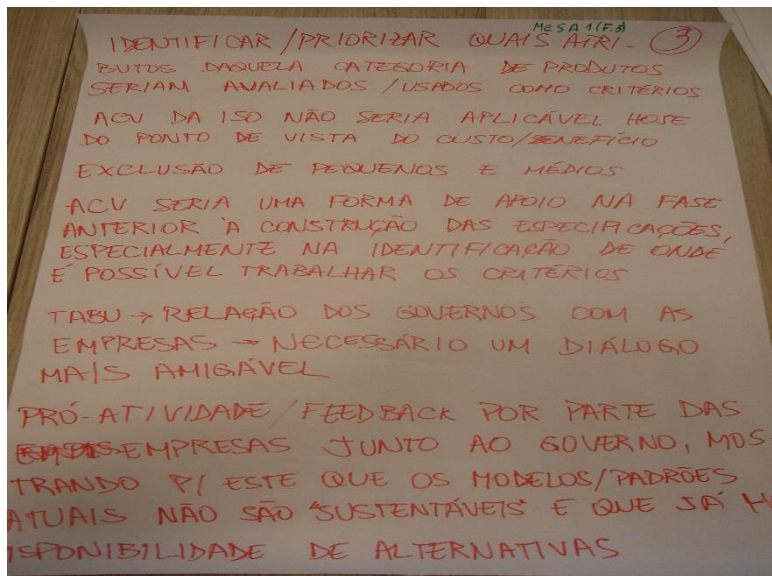 MESA 1 (F.3)
IDENTIFICAR/PRIORIZAR QUAIS ATRI- 3
BUTOS DAQUELA CATEGORIA DE PRODUTOS
SERIAM AVALIADOS/USADOS COMO CRITÉRIOS
ACV DA ISO NÃO SERIA APLICÁVEL HOJE
DO PONTO DE VISTA DO CUSTO/BENEFÍCIO
EXCLUSÃO DE PEQUENOS E MÉDIOS
ACV SERIA UMA FORMA DE APOIO NA FASE
ANTERIOR À CONSTRUÇÃO DAS ESPECIFICAÇÕES,
ESPECIALMENTE NA IDENTIFICAÇÃO DE ONDE
É POSSÍVEL TRABALHAR OS CRITÉRIOS
TABU → RELAÇÃO DOS GOVERNOS COM AS
EMPRESAS → NECESSÁRIO UM DIÁLOGO
MAIS AMIGÁVEL
PRÓ-ATIVIDADE/FEEDBACK POR PARTE DAS
EMPRESAS JUNTO AO GOVERNO, MOS
TRANDO P/ ESTE QUE OS MODELOS/PADRÕES
ATUAIS NÃO SÃO "SUSTENTÁVEIS" E QUE JÁ H
ISPONIBILIDADE DE ALTERNATIVAS